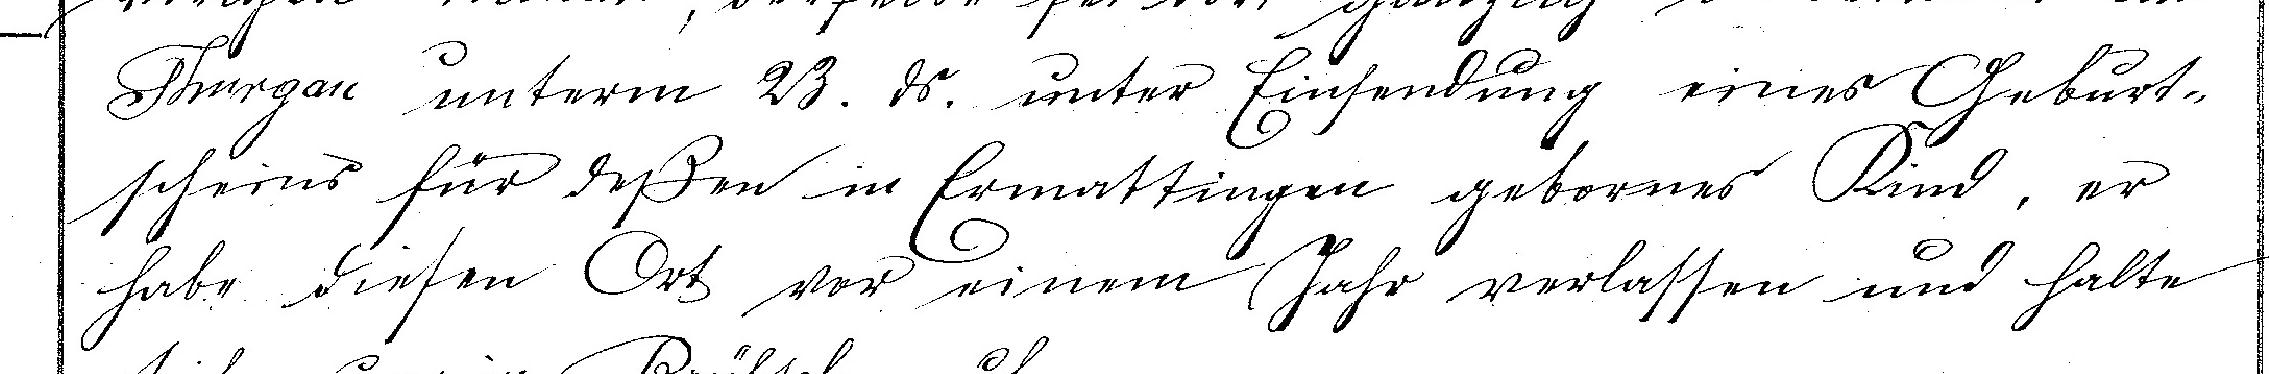 Thurgau unterm 23. ds. unter Einsendung eines Geburt-
scheins für deßen in Ermattingen gebornes Kind, er
habe diesen Ort vor einem Jahr verlassen und halte